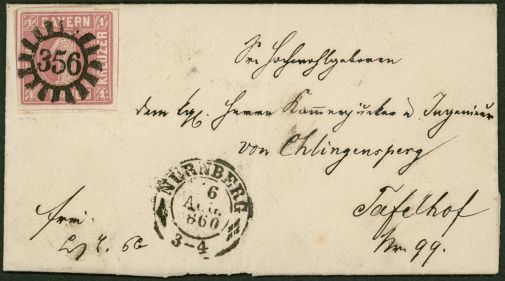 BAYERN
KREUZER
356
Sr Hochwohlgeboren
dem kgl. Herrn Kammerjunker u Ingenieur
von Chlingensperg
Tafelhof
Nr. 99.
frei.
NÜRNBERG
6
AUG.
860
3-4